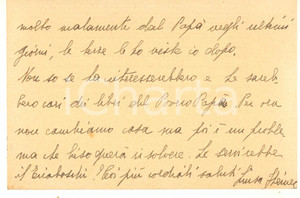 molto malamente dal Papà negli ultimi
giorni, le terze le ho viste io dopo.
Non so se La interesserebbero e Le sareb-
bero cari dei libri del Povero Papà. Per ora
non cambiamo casa ma poi è un proble
ma che bisognerà risolvere. Le servirebbe
il ? Coi più cordiali saluti Luisa Steiner